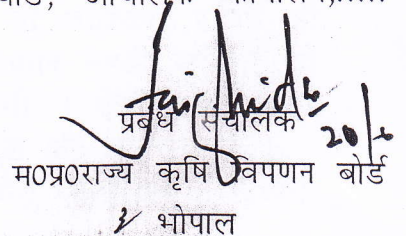 प्रबंध संचालक
20/6
म0प्र0राज्य कृषि विपणन बोर्ड
भोपाल